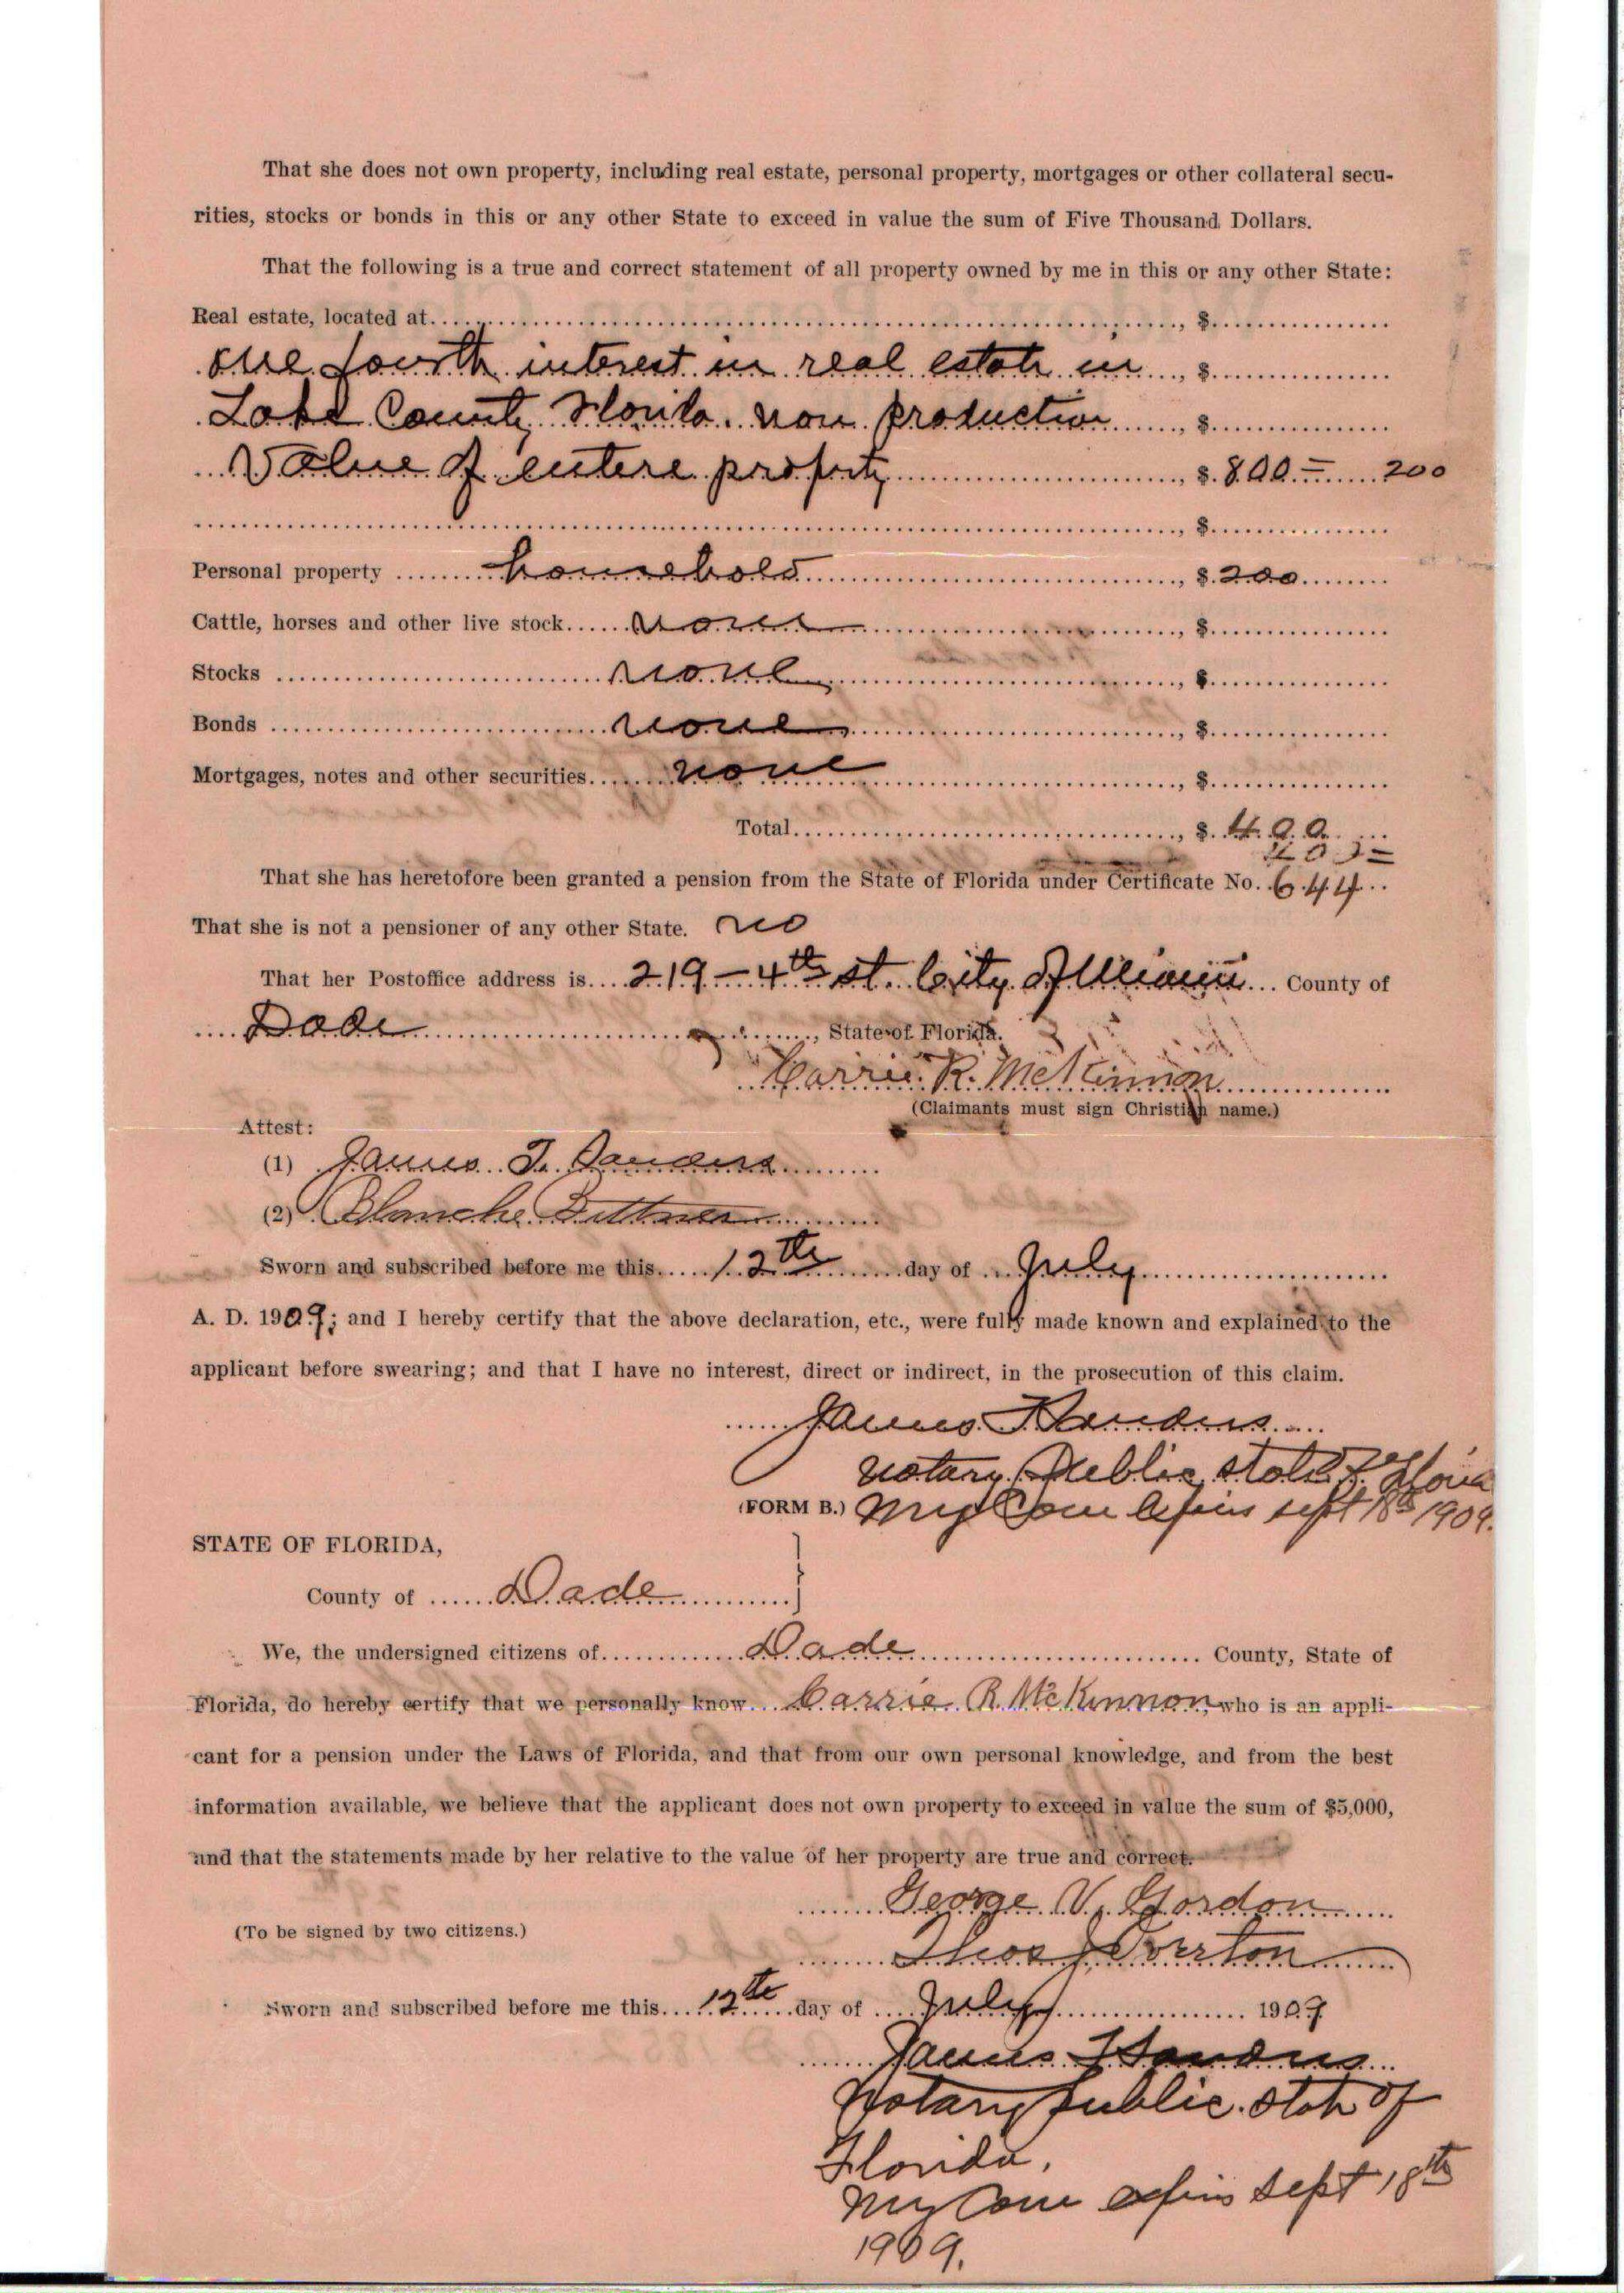 That she does not own property, including real estate, personal property, mortgages or other collateral secu-
rities, stocks or bonds in this or any other State to exceed in value the sum of Five Thousand Dollars.
That the following is a true and correct statement of all property owned by me in this or any other State:
Real estate, located at...................., $................
one fourth interest in real estate in , $................
Lake County, Florida. non production , $................
Value of entire property , $ 800= 200
...................., $................
Personal property ........ household , $ 200
Cattle, horses and other live stock...... none , $................
Stocks ........ none , $................
Bonds ........ none , $................
Mortgages, notes and other securities...... none , $................
Total...................., $ 400
400=
That she has heretofore been granted a pension from the State of Florida under Certificate No. 644
That she is not a pensioner of any other State. no
That her Postoffice address is.... 219 - 4th st. City of Miami ... County of
.... Dade ...................., State of Florida.
Carrie R. McKinnon
(Claimants must sign Christian name.)
Attest:
(1) James T. Sanders
(2) Blanche Bittner
Sworn and subscribed before me this..... 12th ......day of ... July
A. D. 1909; and I hereby certify that the above declaration, etc., were fully made known and explained to the
applicant before swearing; and that I have no interest, direct or indirect, in the prosecution of this claim.
James T Sanders
Notary Public, State of Florida
(FORM B.) My Com Expires Sept 18th 1909.
STATE OF FLORIDA,
County of ...... Dade
We, the undersigned citizens of............ Dade .................... County, State of
Florida, do hereby certify that we personally know... Carrie R. McKinnon, who is an appli-
cant for a pension under the Laws of Florida, and that from our own personal knowledge, and from the best
information available, we believe that the applicant does not own property to exceed in value the sum of $5,000,
and that the statements made by her relative to the value of her property are true and correct.
George V. Gordon
(To be signed by two citizens.)
Thos J Overton
Sworn and subscribed before me this.... 12th ....day of .... July .................... 1909
James T Sanders
Notary public. State of
Florida.
My Com expires Sept 18th
1909.